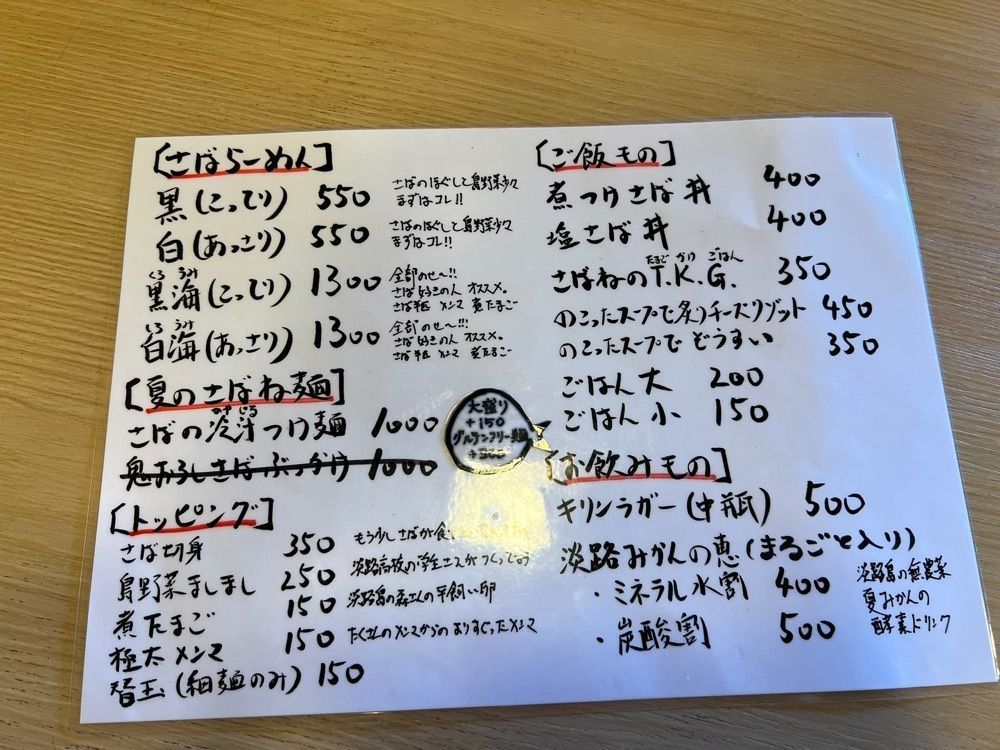 [さばらーめん]
黒(こってり) 550 さばのほぐしと島野菜少々
まずはコレ!!
白(あっさり) 550 さばのほぐしと島野菜少々
まずはコレ!!
くろ うみ
黒海(こってり) 1300 全部のせ〜!!
さば好きの人 オススメ。
メンマ 煮たまご
しろ うみ
白海(あっさり) 1300 全部のせ〜!!!
さば好きの人 オススメ。
メンマ 煮たまご
[夏のさばね麺]
ひや じる
さばの冷汁つけ麺 1000
鬼おろしさばぶっかけ 1000
[トッピング]
さば切身 350 もう少しさばが食
島野菜ましまし 250 淡路高校の学生さんがつくってる
煮たまご 150 淡路島の森さんの平飼い卵
極太メンマ 150 たくさんのメンマからのよりすぐったメンマ
替玉(細麺のみ) 150
大盛り
+150
グルテンフリー麺
+300
[ご飯もの]
煮つけさば丼 400
塩さば丼 400
たまご かけ ごはん
さばねのT.K.G. 350
のこったスープで炙りチーズリゾット 450
のこったスープでぞうすい 350
ごはん 大 200
ごはん 小 150
[お飲みもの]
キリンラガー(中瓶) 500
淡路みかんの恵(まるごと入り)
・ミネラル水割 400
・炭酸割 500
淡路島の無農薬
夏みかんの
酵素ドリンク